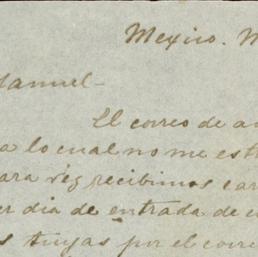 Mexico. M
Manuel-
El correo de a
a lo cual no me est
ara vez recibimos car
er dia de entrada de c
s tuyas por el corre